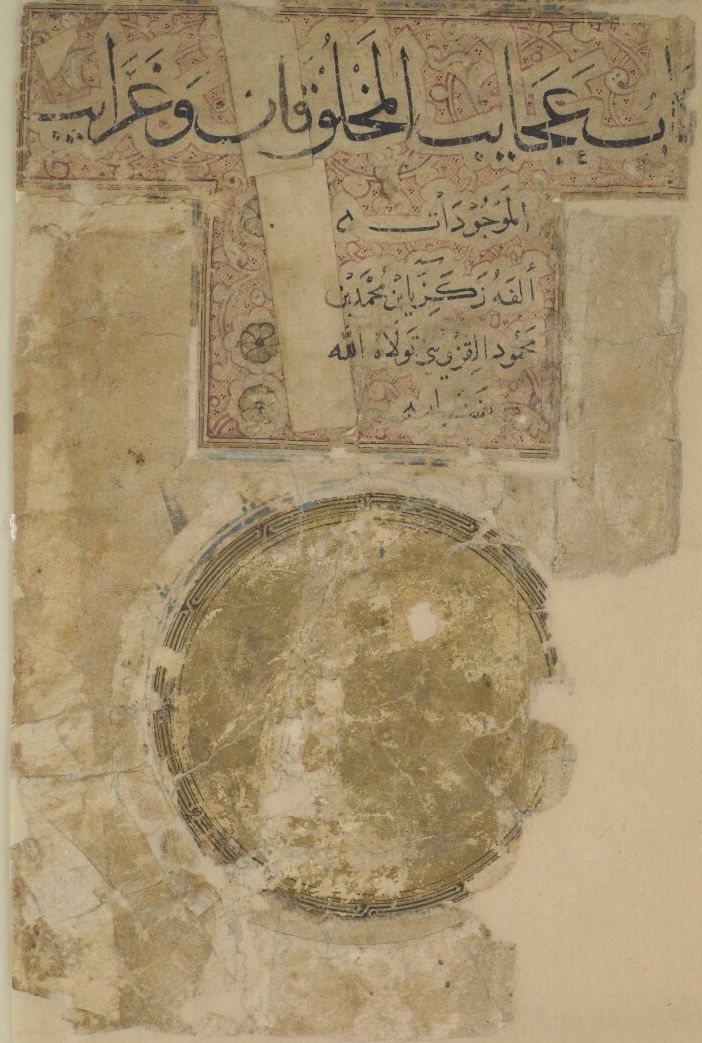 ـب عَجَايب المَخلُوقات وَغَرَايب
المَوْجُودَات
ألفهُ زكَريَّا بن مُحمَّد بن
محَمُود القزويني تولاهُ الله